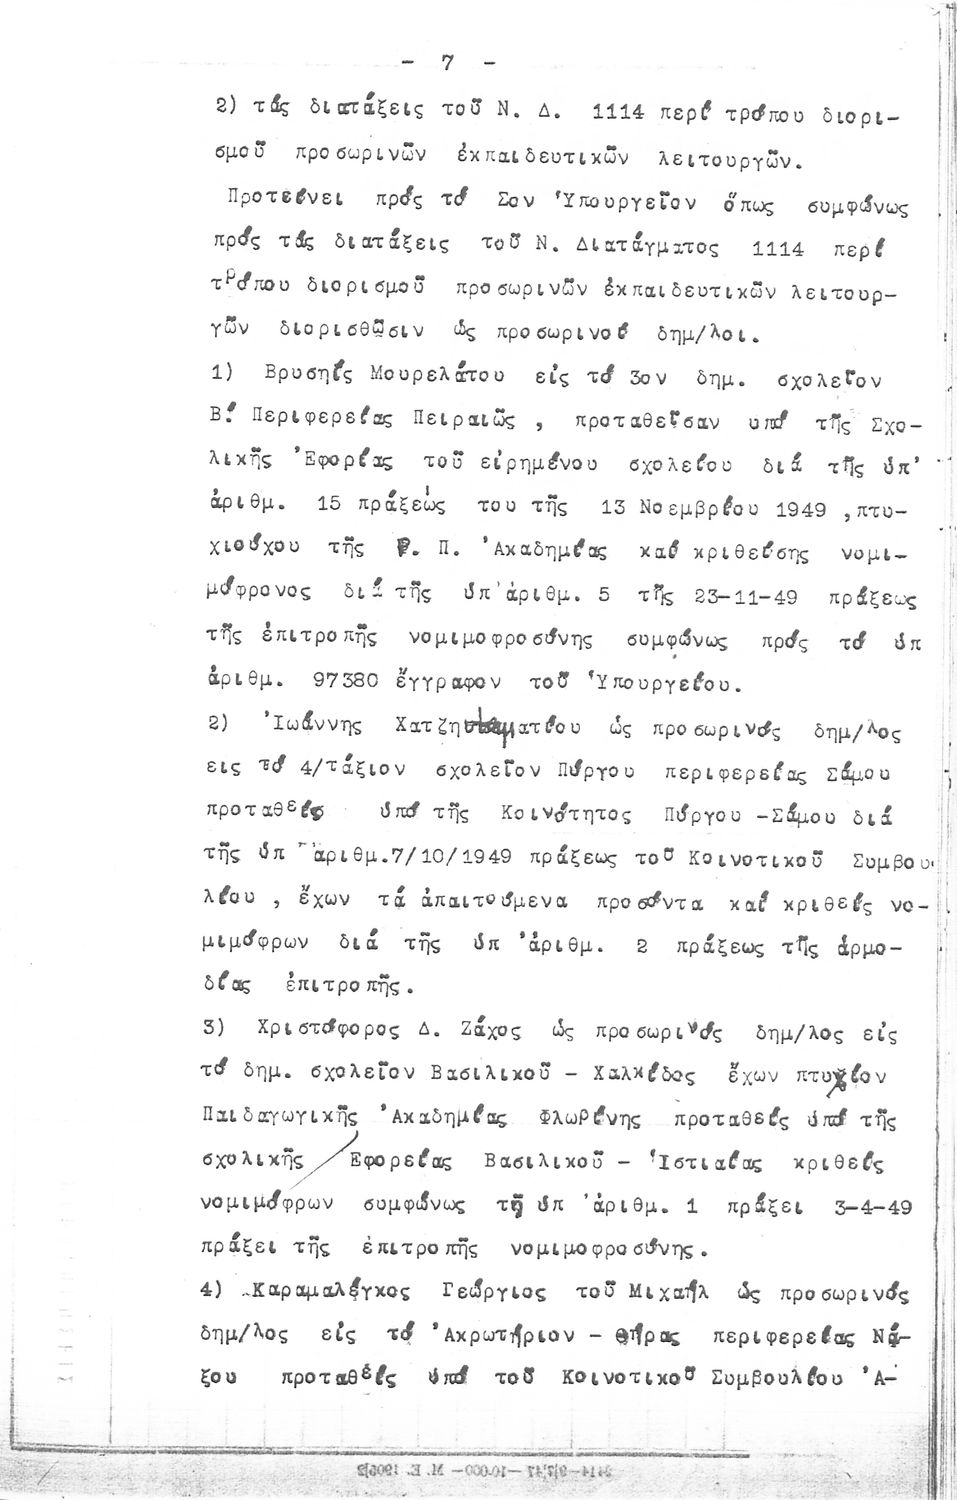 - 7 -
2) τάς διατάξεις τοῦ Ν. Δ. 1114 περί τρόπου διορι-
σμοῦ προσωρινῶν ἐκπαιδευτικῶν λειτουργῶν.
Προτείνει πρός τό Σον Ὑπουργεῖον ὅπως συμφώνως
πρός τάς διατάξεις τοῦ Ν. Διατάγματος 1114 περί
τρόπου διορισμοῦ προσωρινῶν ἐκπαιδευτικῶν λειτουρ-
γῶν διορισθῶσιν ὡς προσωρινοί δημ/λοι.
1) Βρυσηίς Μουρελάτου εἰς τό 3ον δημ. σχολεῖον
Β! Περιφερείας Πειραιῶς , προταθεῖσαν υπό τῆς Σχο-
λικῆς Ἐφορίας τοῦ εἰρημένου σχολείου διά τῆς ὑπ'
ἀριθμ. 15 πράξεώς του τῆς 13 Νοεμβρίου 1949 ,πτυ-
χιούχου τῆς Ρ. Π. Ἀκαδημίας καί κριθείσης νομι-
μόφρονος διά τῆς ὑπ'ἀριθμ. 5 τῆς 23-11-49 πράξεως
τῆς ἐπιτροπῆς νομιμοφροσύνης συμφώνως πρός τό ὑπ
ἀριθμ. 97380 ἔγγραφον τοῦ Ὑπουργείου.
2) Ἰωάννης Χατζησταματίου ὡς προσωρινός δημ/λος
εις τό 4/τάξιον σχολεῖον Πύργου περιφερείας Σάμου
προταθείς ὑπό τῆς Κοινότητος Πύργου -Σάμου διά
τῆς ὑπ ἀριθμ.7/10/1949 πράξεως τοῦ Κοινοτικοῦ Συμβου
λίου , ἔχων τά ἀπαιτούμενα προσόντα καί κριθείς νο-
μιμόφρων διά τῆς ὑπ ἀριθμ. 2 πράξεως τῆς ἁρμο-
δίας ἐπιτροπῆς.
3) Χριστόφορος Δ. Ζάχος ὡς προσωρινός δημ/λος εἰς
τό δημ. σχολεῖον Βασιλικοῦ - Χαλκίδος ἔχων πτυχίον
Παιδαγωγικῆς Ἀκαδημίας Φλωρίνης προταθείς ὑπό τῆς
σχολικῆς Ἐφορείας Βασιλικοῦ - Ἱστιαίας κριθείς
νομιμόφρων συμφώνως τῇ ὑπ ἀριθμ. 1 πράξει 3-4-49
πράξει τῆς ἐπιτροπῆς νομιμοφροσύνης.
4) Καραμαλέγκος Γεώργιος τοῦ Μιχαήλ ὡς προσωρινός
δημ/λος εἰς τό Ἀκρωτήριον - Θήρας περιφερείας Νά-
ξου προταθείς ὑπό τοῦ Κοινοτικοῦ Συμβουλίου Ἀ-